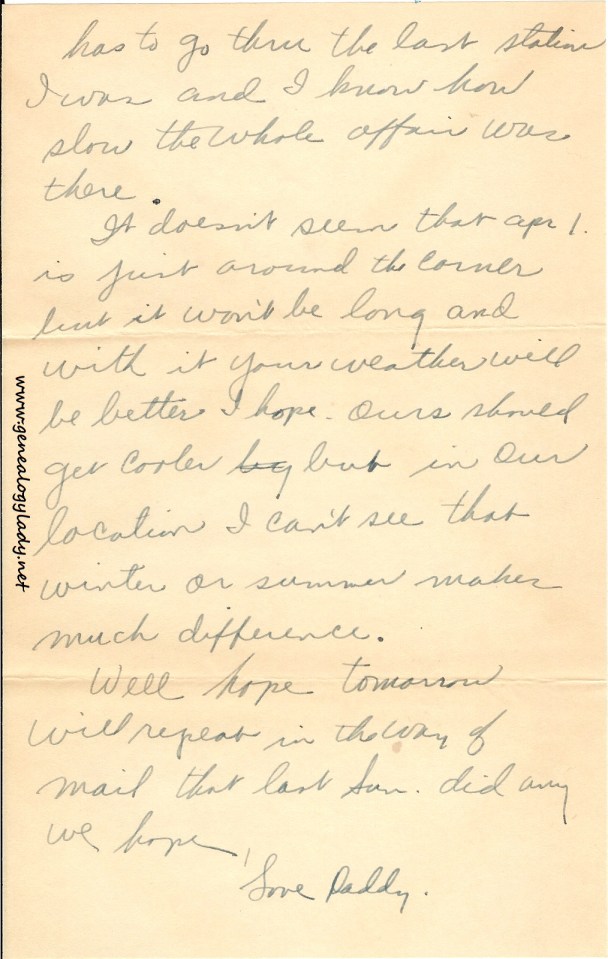 has to go thru the last station
I was and I know how
slow the whole affair was
there.
It doesn't seem that apr 1.
is just around the corner
but it won't be long and
with it your weather will
be better I hope. Ours should
get cooler by but in our
location I can't see that
winter or summer makes
much difference.
Well hope tomorrow
will repeat in the way of
mail that last Sun. did any
we hope!
Love Daddy.
www.genealogylady.net